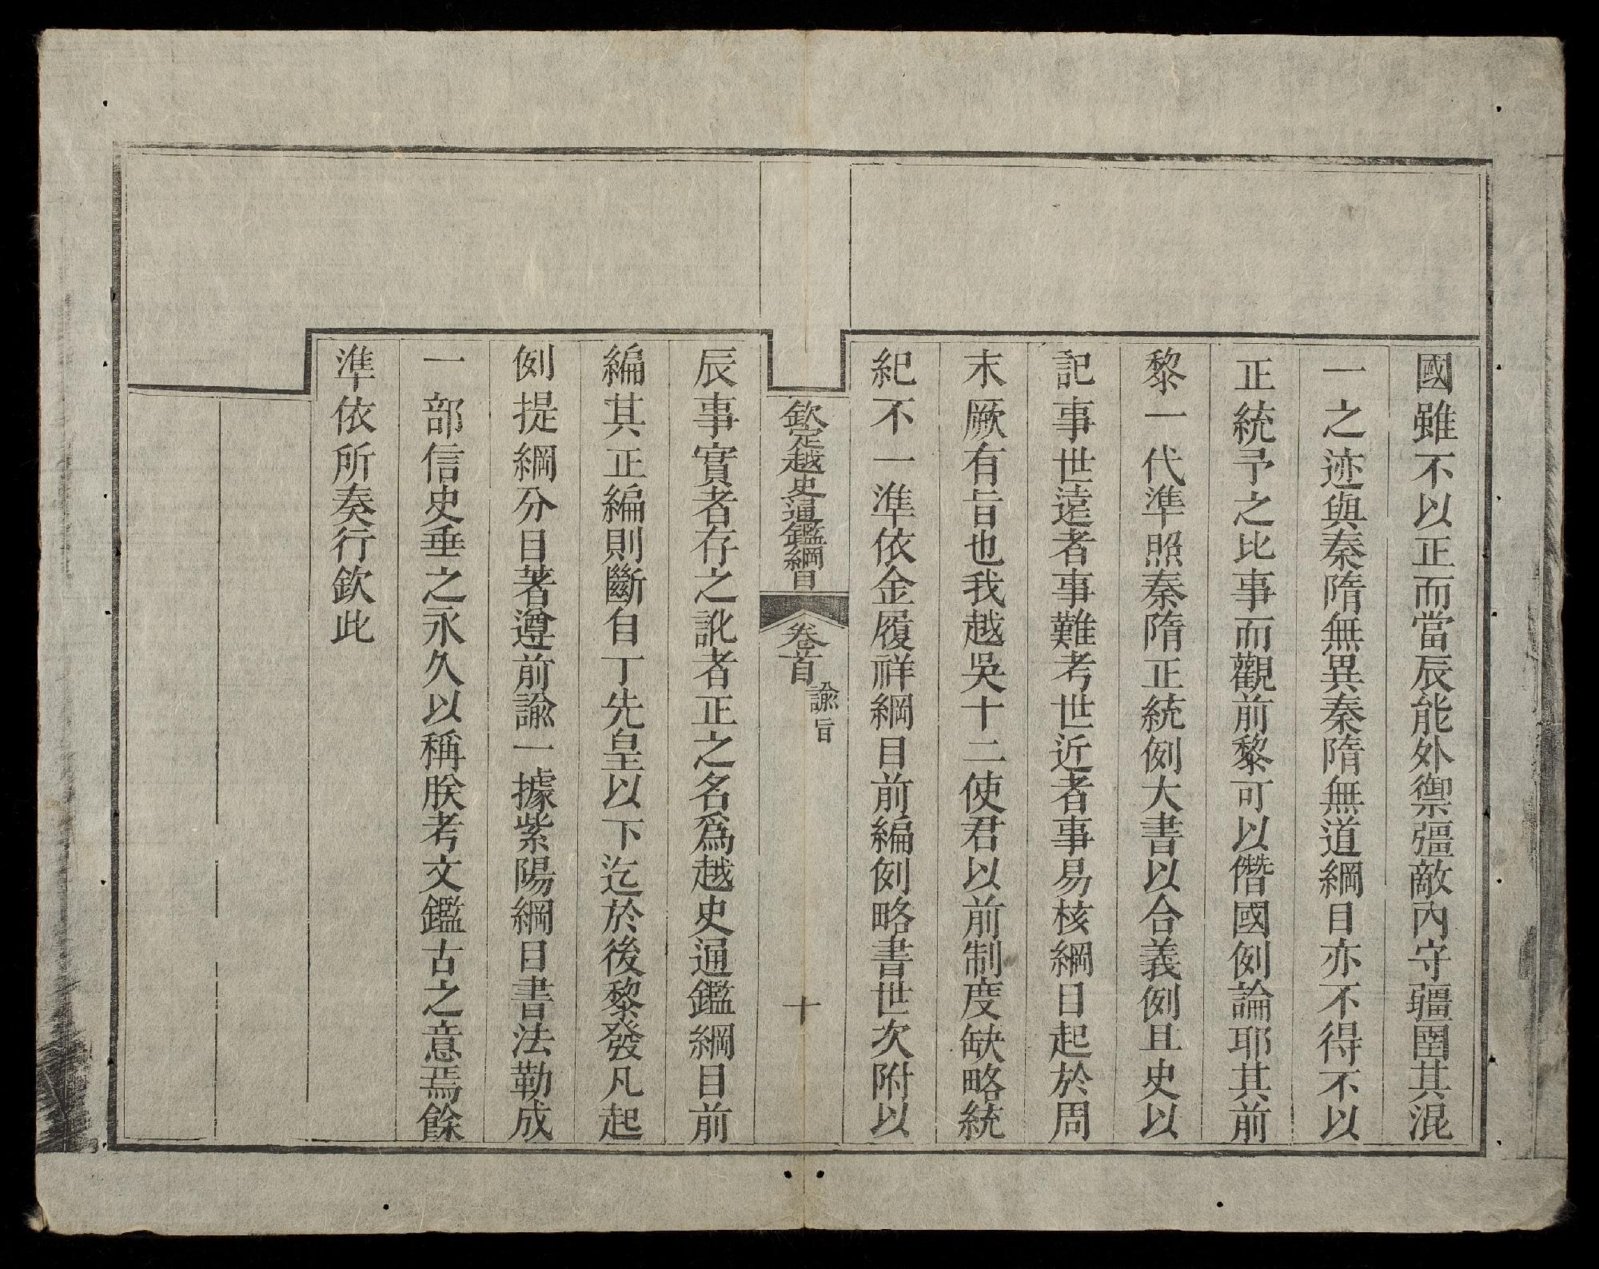 國雖不以正而當辰能外禦彊敵內守疆圉其混
一之迹與秦隋無異秦隋無道綱目亦不得不以
正統予之比事而觀前黎可以僭國例論耶其前
黎一代準照秦隋正統例大書以合義例且史以
記事世遠者事難考世近者事易核綱目起於周
末厥有旨也我越吳十二使君以前制度缺略統
紀不一準依金履祥綱目前編例略書世次附以
欽定越史通鑑綱目 卷首 諭旨 十
辰事實者存之訛者正之名爲越史通鑑綱目前
編其正編則斷自丁先皇以下迄於後黎發凡起
例提綱分目著遵前諭一據紫陽綱目書法勒成
一部信史垂之永久以稱朕考文鑑古之意焉餘
準依所奏行欽此